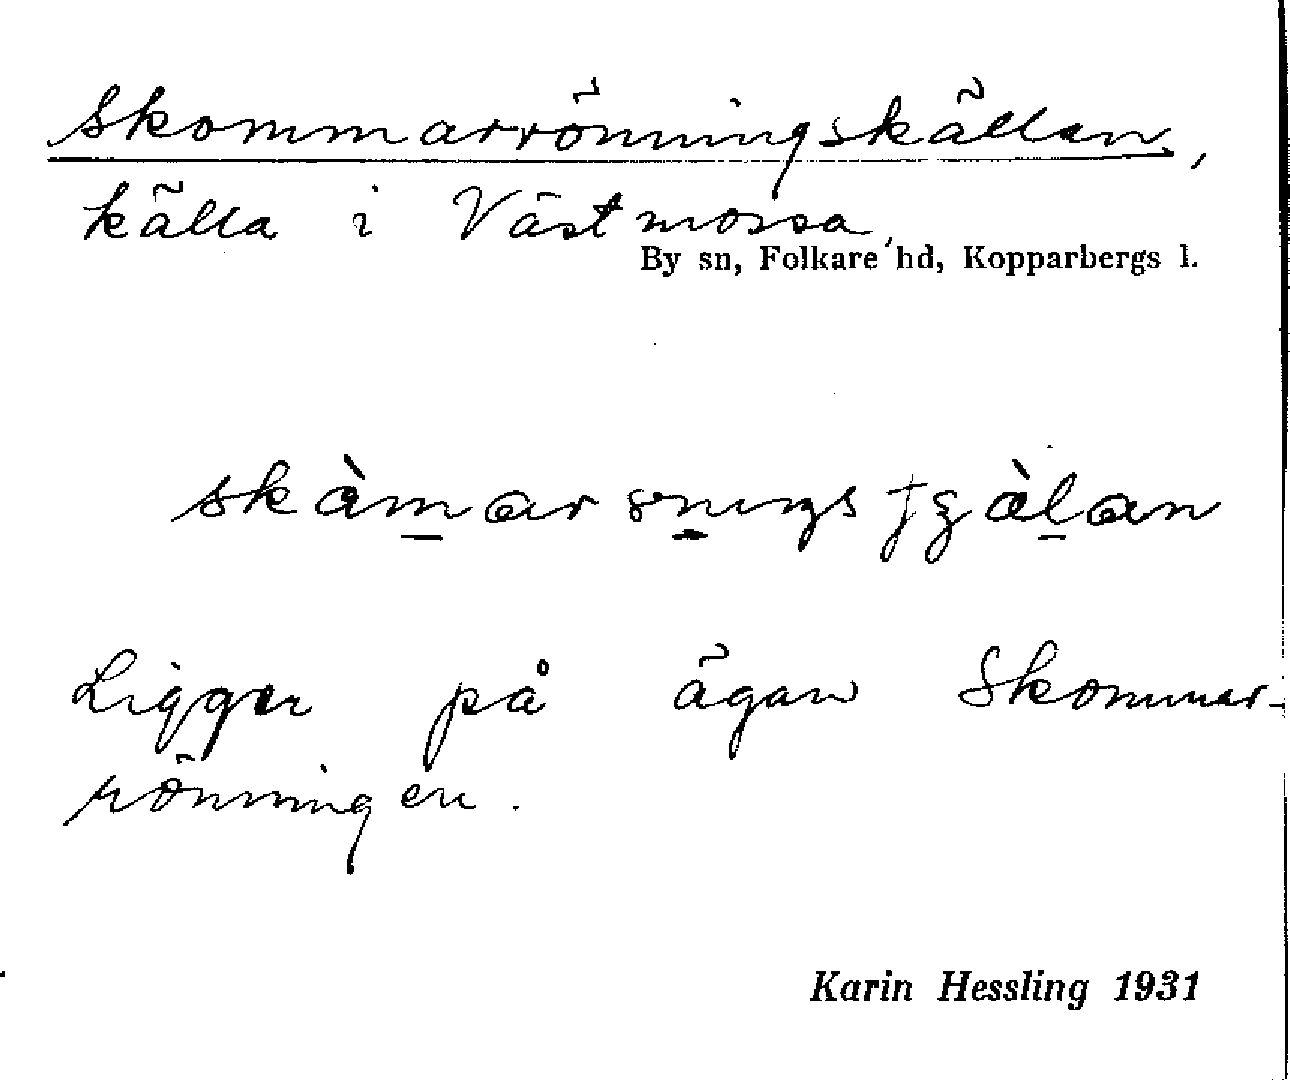 Skommarrönningskällan,
källa i Västmossa,
By sn, Folkare hd, Kopparbergs l.
Ligger på ägan Skommar-
rönningen.
Karin Hessling 1931